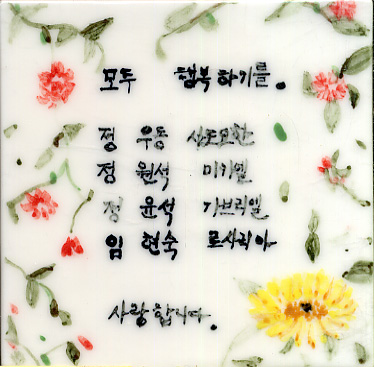 모두 행복하기를.
정 우동 사도요한
정 원석 미카엘
정 윤석 가브리엘
임 현숙 로사리아
사랑합니다.